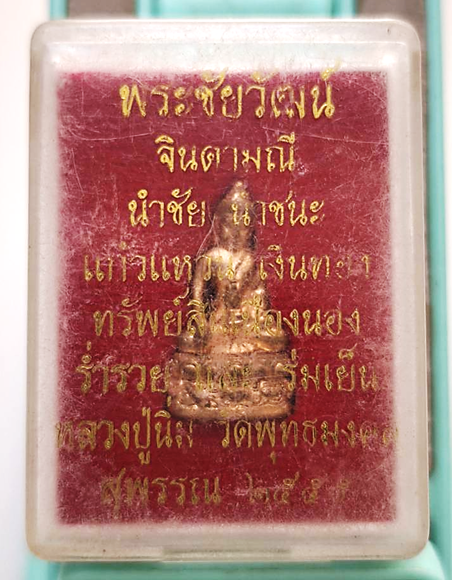 พระชัยวัฒน์
จินดามณี
นำชัย นำชนะ
แก้วแหวน เงินทอง
ทรัพย์สิน
ร่ำรวย ร่มเย็น
หลวงปู่นิ่ม วัดพุทธมงคล
สุพรรณ